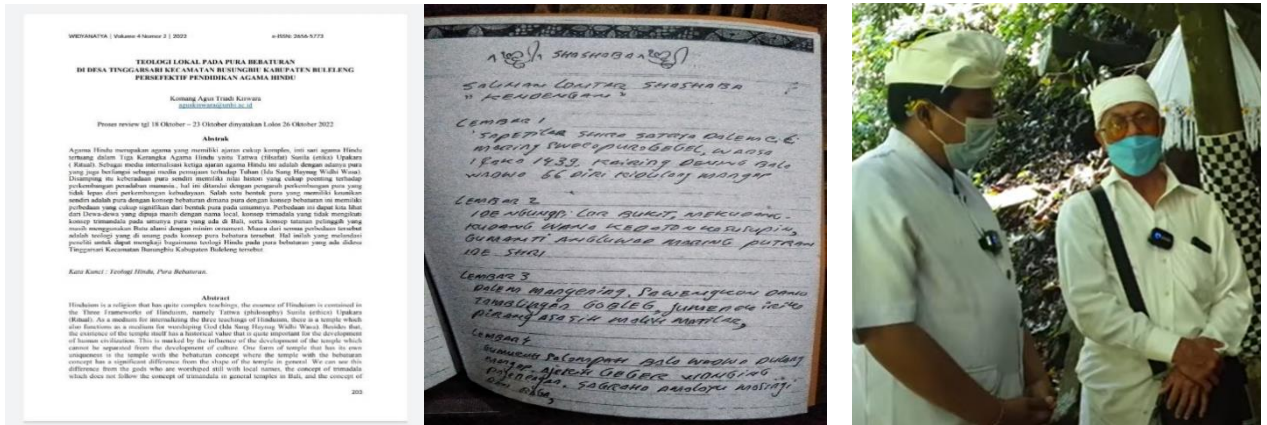 WIDYANATYA | Volume 4 Nomor 2 | 2022 e-ISSN: 2656-5773
TEOLOGI LOKAL PADA PURA BEBATURAN
DI DESA TINGGARSARI KECAMATAN BUSUNGBIU KABUPATEN BULELENG
PERSEFEKTIF PENDIDIKAN AGAMA HINDU
Komang Agus Triadi Kiswara
aguskiswara@unhi.ac.id
Proses review tgl 18 Oktober – 23 Oktober dinyatakan Lolos 26 Oktober 2022
Abstrak
Agama Hindu merupakan agama yang memiliki ajaran cukup komplex, inti sari agama Hindu
tertuang dalam Tiga Kerangka Agama Hindu yaitu Tattwa (filsafat) Susila (etika) Upakara
( Ritual). Sebagai media internalisasi ketiga ajaran agama Hindu ini adalah dengan adanya pura
yang juga berfungsi sebagai media pemujaan terhadap Tuhan (Ida Sang Hayng Widhi Wasa).
Disamping itu keberadaan pura sendiri memiliki nilai histori yang cukup penting terhadap
perkembangan peradaban manusia., hal ini ditandai dengan pengaruh perkembangan pura yang
tidak lepas dari perkembangan kebudayaan. Salah satu bentuk pura yang memiliki keunikan
sendiri adalah pura dengan konsep bebaturan dimana pura dengan konsep bebaturan ini memiliki
perbedaan yang cukup significan dari bentuk pura pada umumnya. Perbedaan ini dapat kita lihat
dari Dewa-dewa yang dipuja masih dengan nama local, konsep trimandala yang tidak mengikuti
konsep trimandala pada umunya pura yang ada di Bali, serta konsep tatanan pelinggih yang
masih menggunakan Batu alami dengan minim ornament. Muara dari semua perbedaan tersebut
adalah teologi yang di usung pada konsep pura bebatura tersebut. Hal inilah yang melandasi
peneliti untuk dapat mengkaji bagaimana teologi Hindu pada pura bebaturan yang ada didesa
Tinggarsari Kecamatan Busungbiu Kabupaten Buleleng tersebut.
Kata Kunci : Teologi Hindu, Pura Bebaturan.
Abstract
Hinduism is a religion that has quite complex teachings, the essence of Hinduism is contained in
the Three Frameworks of Hinduism, namely Tattwa (philosophy) Susila (ethics) Upakara
(Ritual). As a medium for internalizing the three teachings of Hinduism, there is a temple which
also functions as a medium for worshiping God (Ida Sang Hayng Widhi Wasa). Besides that,
the existence of the temple itself has a historical value that is quite important for the development
of human civilization. This is marked by the influence of the development of the temple which
cannot be separated from the development of culture. One form of temple that has its own
uniqueness is the temple with the bebaturan concept where the temple with the bebaturan
concept has a significant difference from the shape of the temple in general. We can see this
difference from the gods who are worshiped still with local names, the concept of trimadala
which does not follow the concept of trimandala in general temples in Bali, and the concept of
205
SHASHABA
SALINAN LONTAR SHASHABA
" KENDENGAN "
LEMBAR 1
SAPETILAR SHIRA SATRYA DALEM
MARING SWECAPURO GEGEL, WARSA
1 ÇAKA 1439. KAIRING DENING BALA
WADWA 66 DIRI
LEMBAR 2
IDE NGUNGSI LOR BUKIT,
WANA KEPATON KASUSUPIN,
MARING PUTRAN
IDE SHRI
LEMBAR 3
DALEM MANGENING, SAWENGKON DANU
TAMBLINGAN GOBLEG
LEMBAR 4
BALA WADWA
GEGER